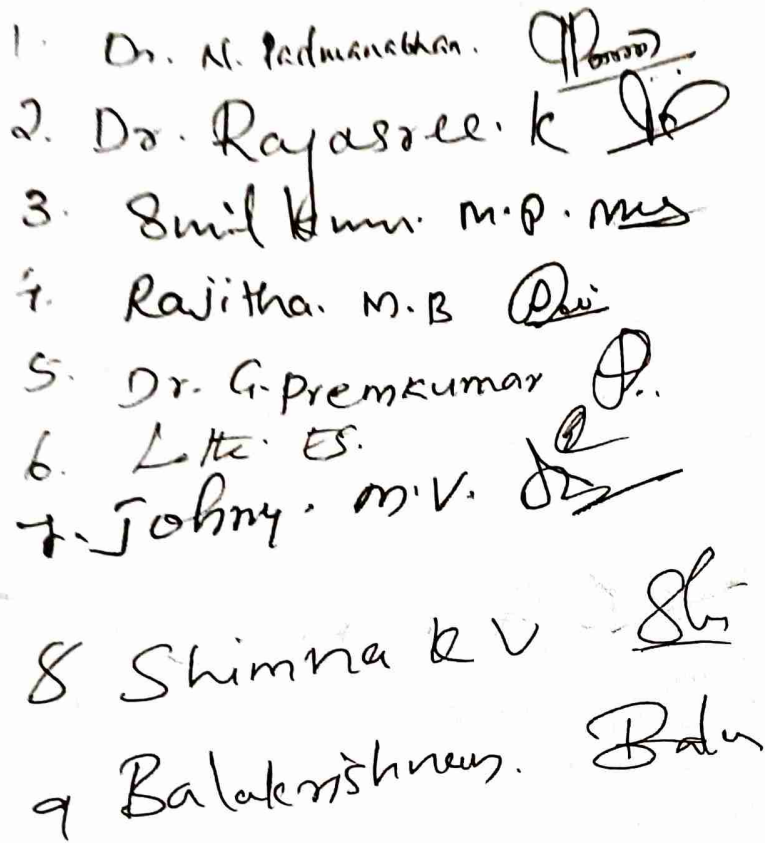 1. Dr. N. Padmanabhan.
2. Dr. Rajasree. K
3. Sunil Kumar. M.P.
4. Rajitha. M.B
5. Dr. G. Premkumar
6. E.S.
7. Johny. M.V.
8 Shimna K V
9 Balakrishnan. Balu